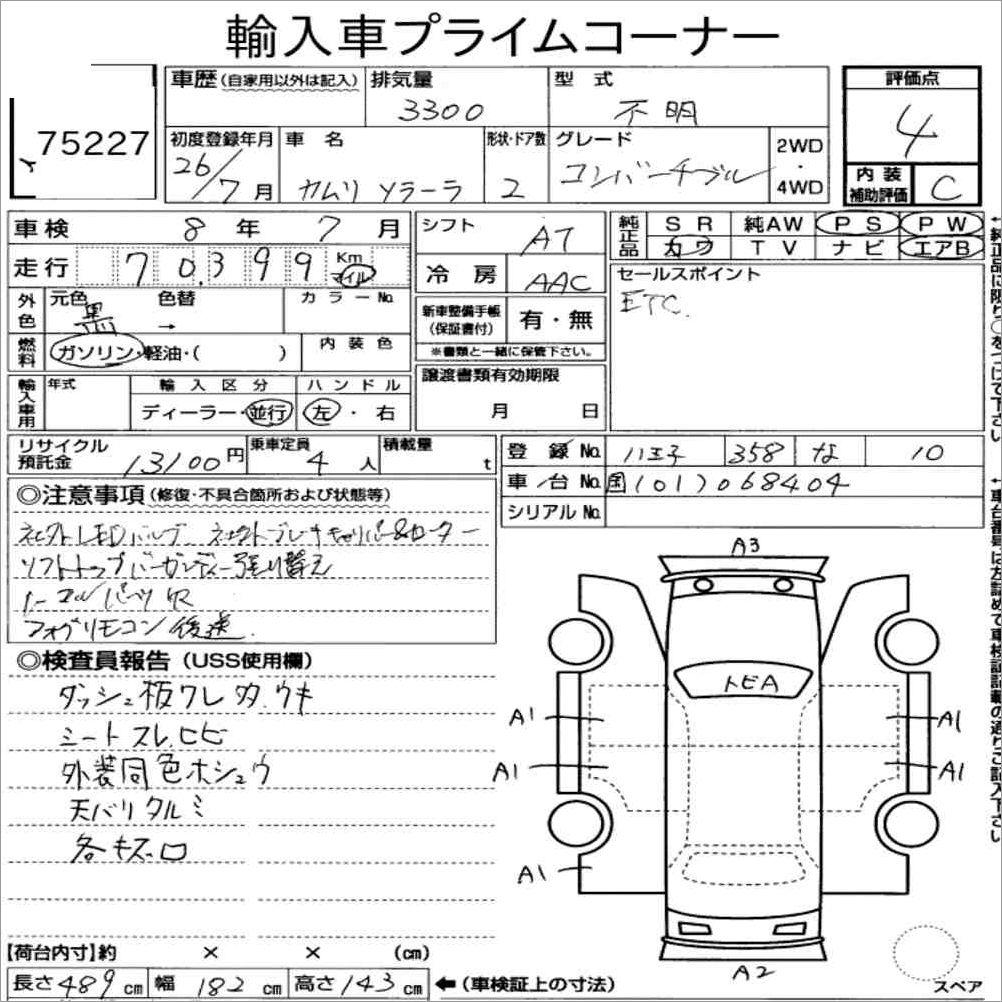 輸入車プライムコーナー
75227
車歴(自家用以外は記入)
排気量
3300
型 式
不明
評価点
4
初度登録年月
26/7月
車 名
カムリ ソラーラ
形状・ドア数
2
グレード
コンバーチブル
2WD
・
4WD
内 装
補助評価
C
車検 8 年 7 月
走行 70,399 Km
マイル
シフト AT
冷 房 AAC
純正品
SR 純AW PS PW
カワ TV ナビ エアB
セールスポイント
ETC.
外色
元色 黒
色替 →
カラーNo
燃料
ガソリン・軽油・( )
内 装 色
新車整備手帳
(保証書付)
有・無
※書類と一緒に保管下さい。
輸入車用
年式
輸 入 区 分
ディーラー・並行
ハ ン ド ル
左 ・ 右
譲渡書類有効期限
月 日
リサイクル
預託金 13100円
乗車定員
4 人
積載量
t
登 録 No. 八王子 358 な 10
車 台 No. 国(01)068404
シリアル No.
◎注意事項(修復・不具合箇所および状態等)
ソフトトップバーガンディー張り替え
フォグリモコン後送.
◎検査員報告(USS使用欄)
ダッシュ板ワレ タ.ウキ
シートスレ.ヒビ
外装同色ホシュウ
天バリタルミ
各キズ.ロ
A3
トビA
A1
A1
A1
A1
A1
A2
スペア
【荷台内寸】約 × × (cm)
長さ 489 cm 幅 182 cm 高さ 143 cm ←(車検証上の寸法)
↑純正品に限り○をつけて下さい
↑車台番号は左詰めで車検証記載の通りご記入下さい